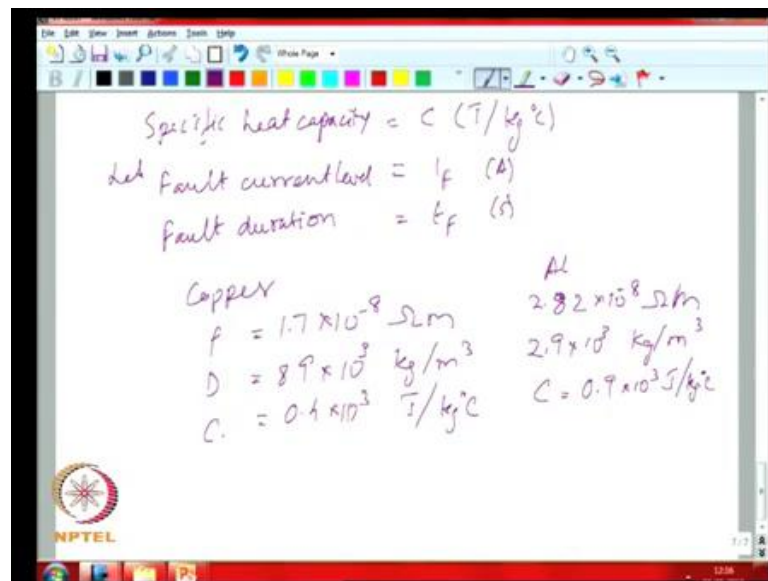 File Edit View Insert Actions Tools Help
Whole Page
B I
Specific heat capacity = C (J/kg°C)
Let fault current level = I_F (A)
fault duration = t_F (s)
Copper Al
ρ = 1.7 × 10⁻⁸ Ωm 2.82 × 10⁻⁸ Ωm
D = 8.9 × 10³ kg/m³ 2.9 × 10³ kg/m³
C. = 0.4 × 10³ J/kg°C C = 0.9 × 10³ J/kg°C
NPTEL
7/7
12:16